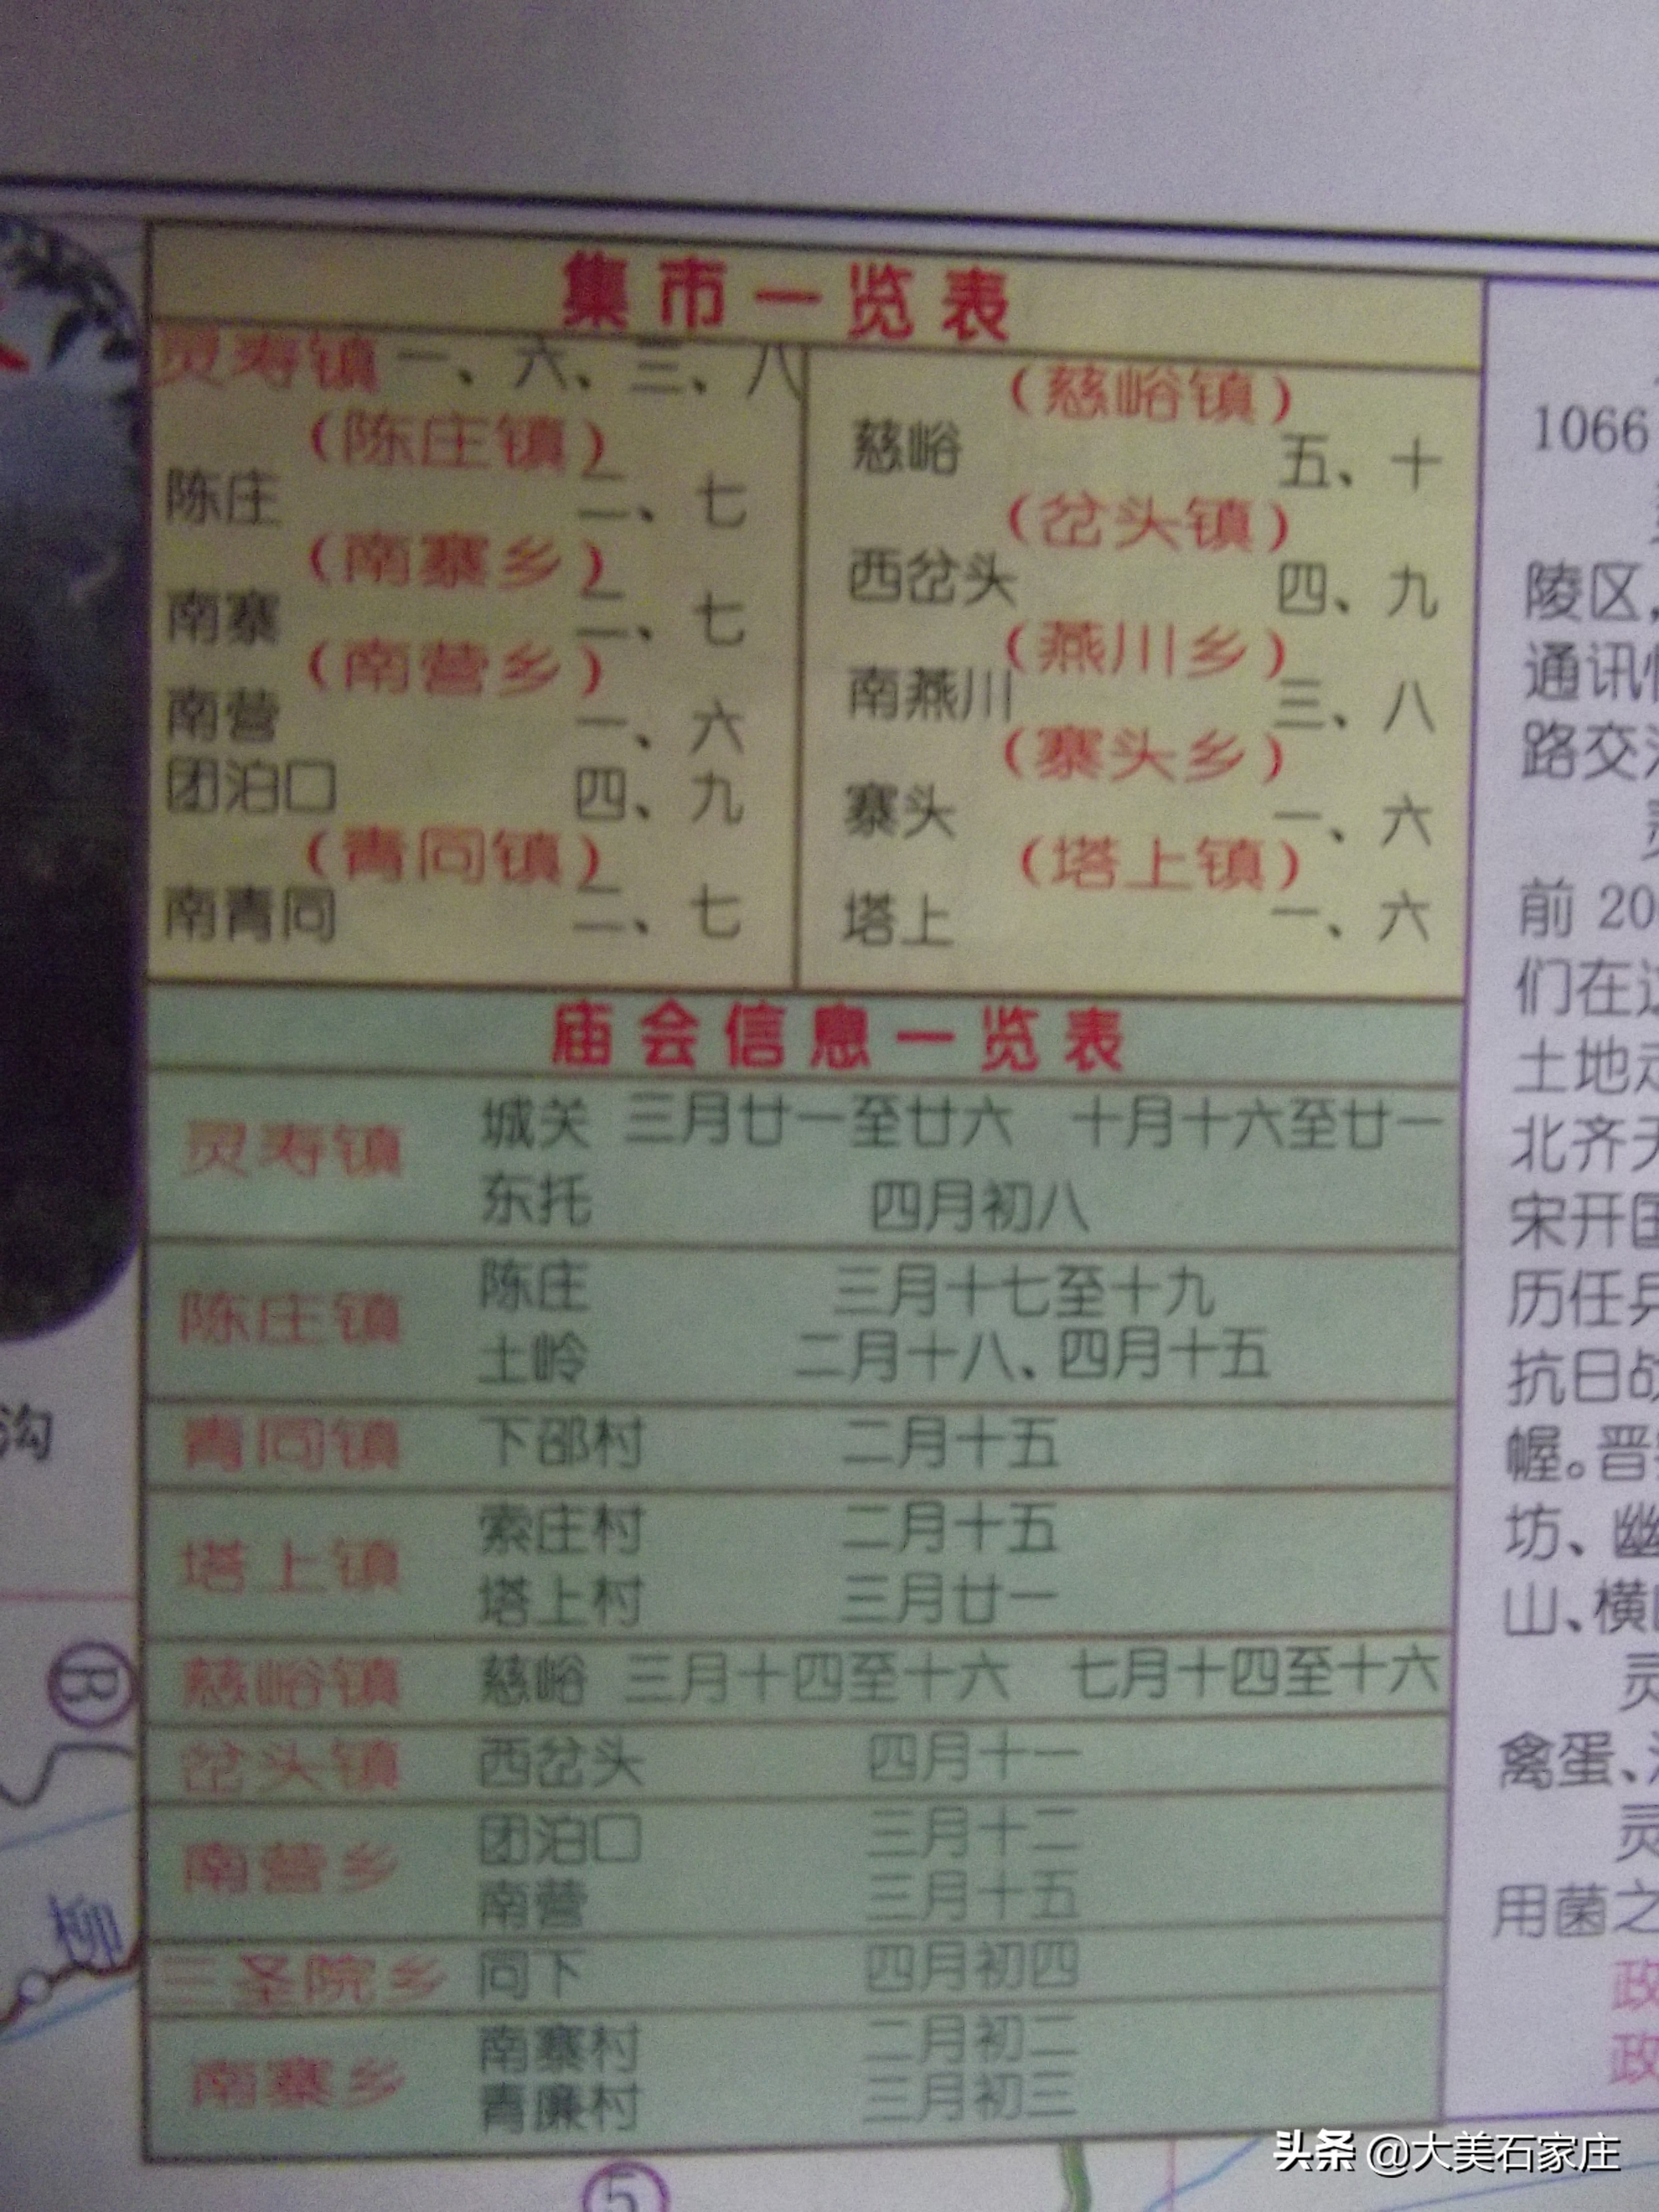 集市一览表
灵寿镇 一、六、三、八
(陈庄镇)
陈庄 二、七
(南寨乡)
南寨 二、七
(南营乡)
南营 一、六
团泊口 四、九
(青同镇)
南青同 二、七
(慈峪镇)
慈峪 五、十
(岔头镇)
西岔头 四、九
(燕川乡)
南燕川 三、八
(寨头乡)
寨头 一、六
(塔上镇)
塔上 一、六
庙会信息一览表
灵寿镇
城关 三月廿一至廿六 十月十六至廿一
东托 四月初八
陈庄镇
陈庄 三月十七至十九
土岭 二月十八、四月十五
青同镇 下邵村 二月十五
塔上镇
索庄村 二月十五
塔上村 三月廿一
慈峪镇 慈峪 三月十四至十六 七月十四至十六
岔头镇 西岔头 四月十一
南营乡
团泊口 三月十二
南营 三月十五
三圣院乡 同下 四月初四
南寨乡
南寨村 二月初二
青廉村 三月初三
1066
陵区,
通讯
路交
前 20
们在
土地
北齐
宋开
历任
抗日
幄。晋
坊、幽
山、横
灵
禽蛋、
灵
用菌之
政
政
沟
R
柳
5
头条 @大美石家庄